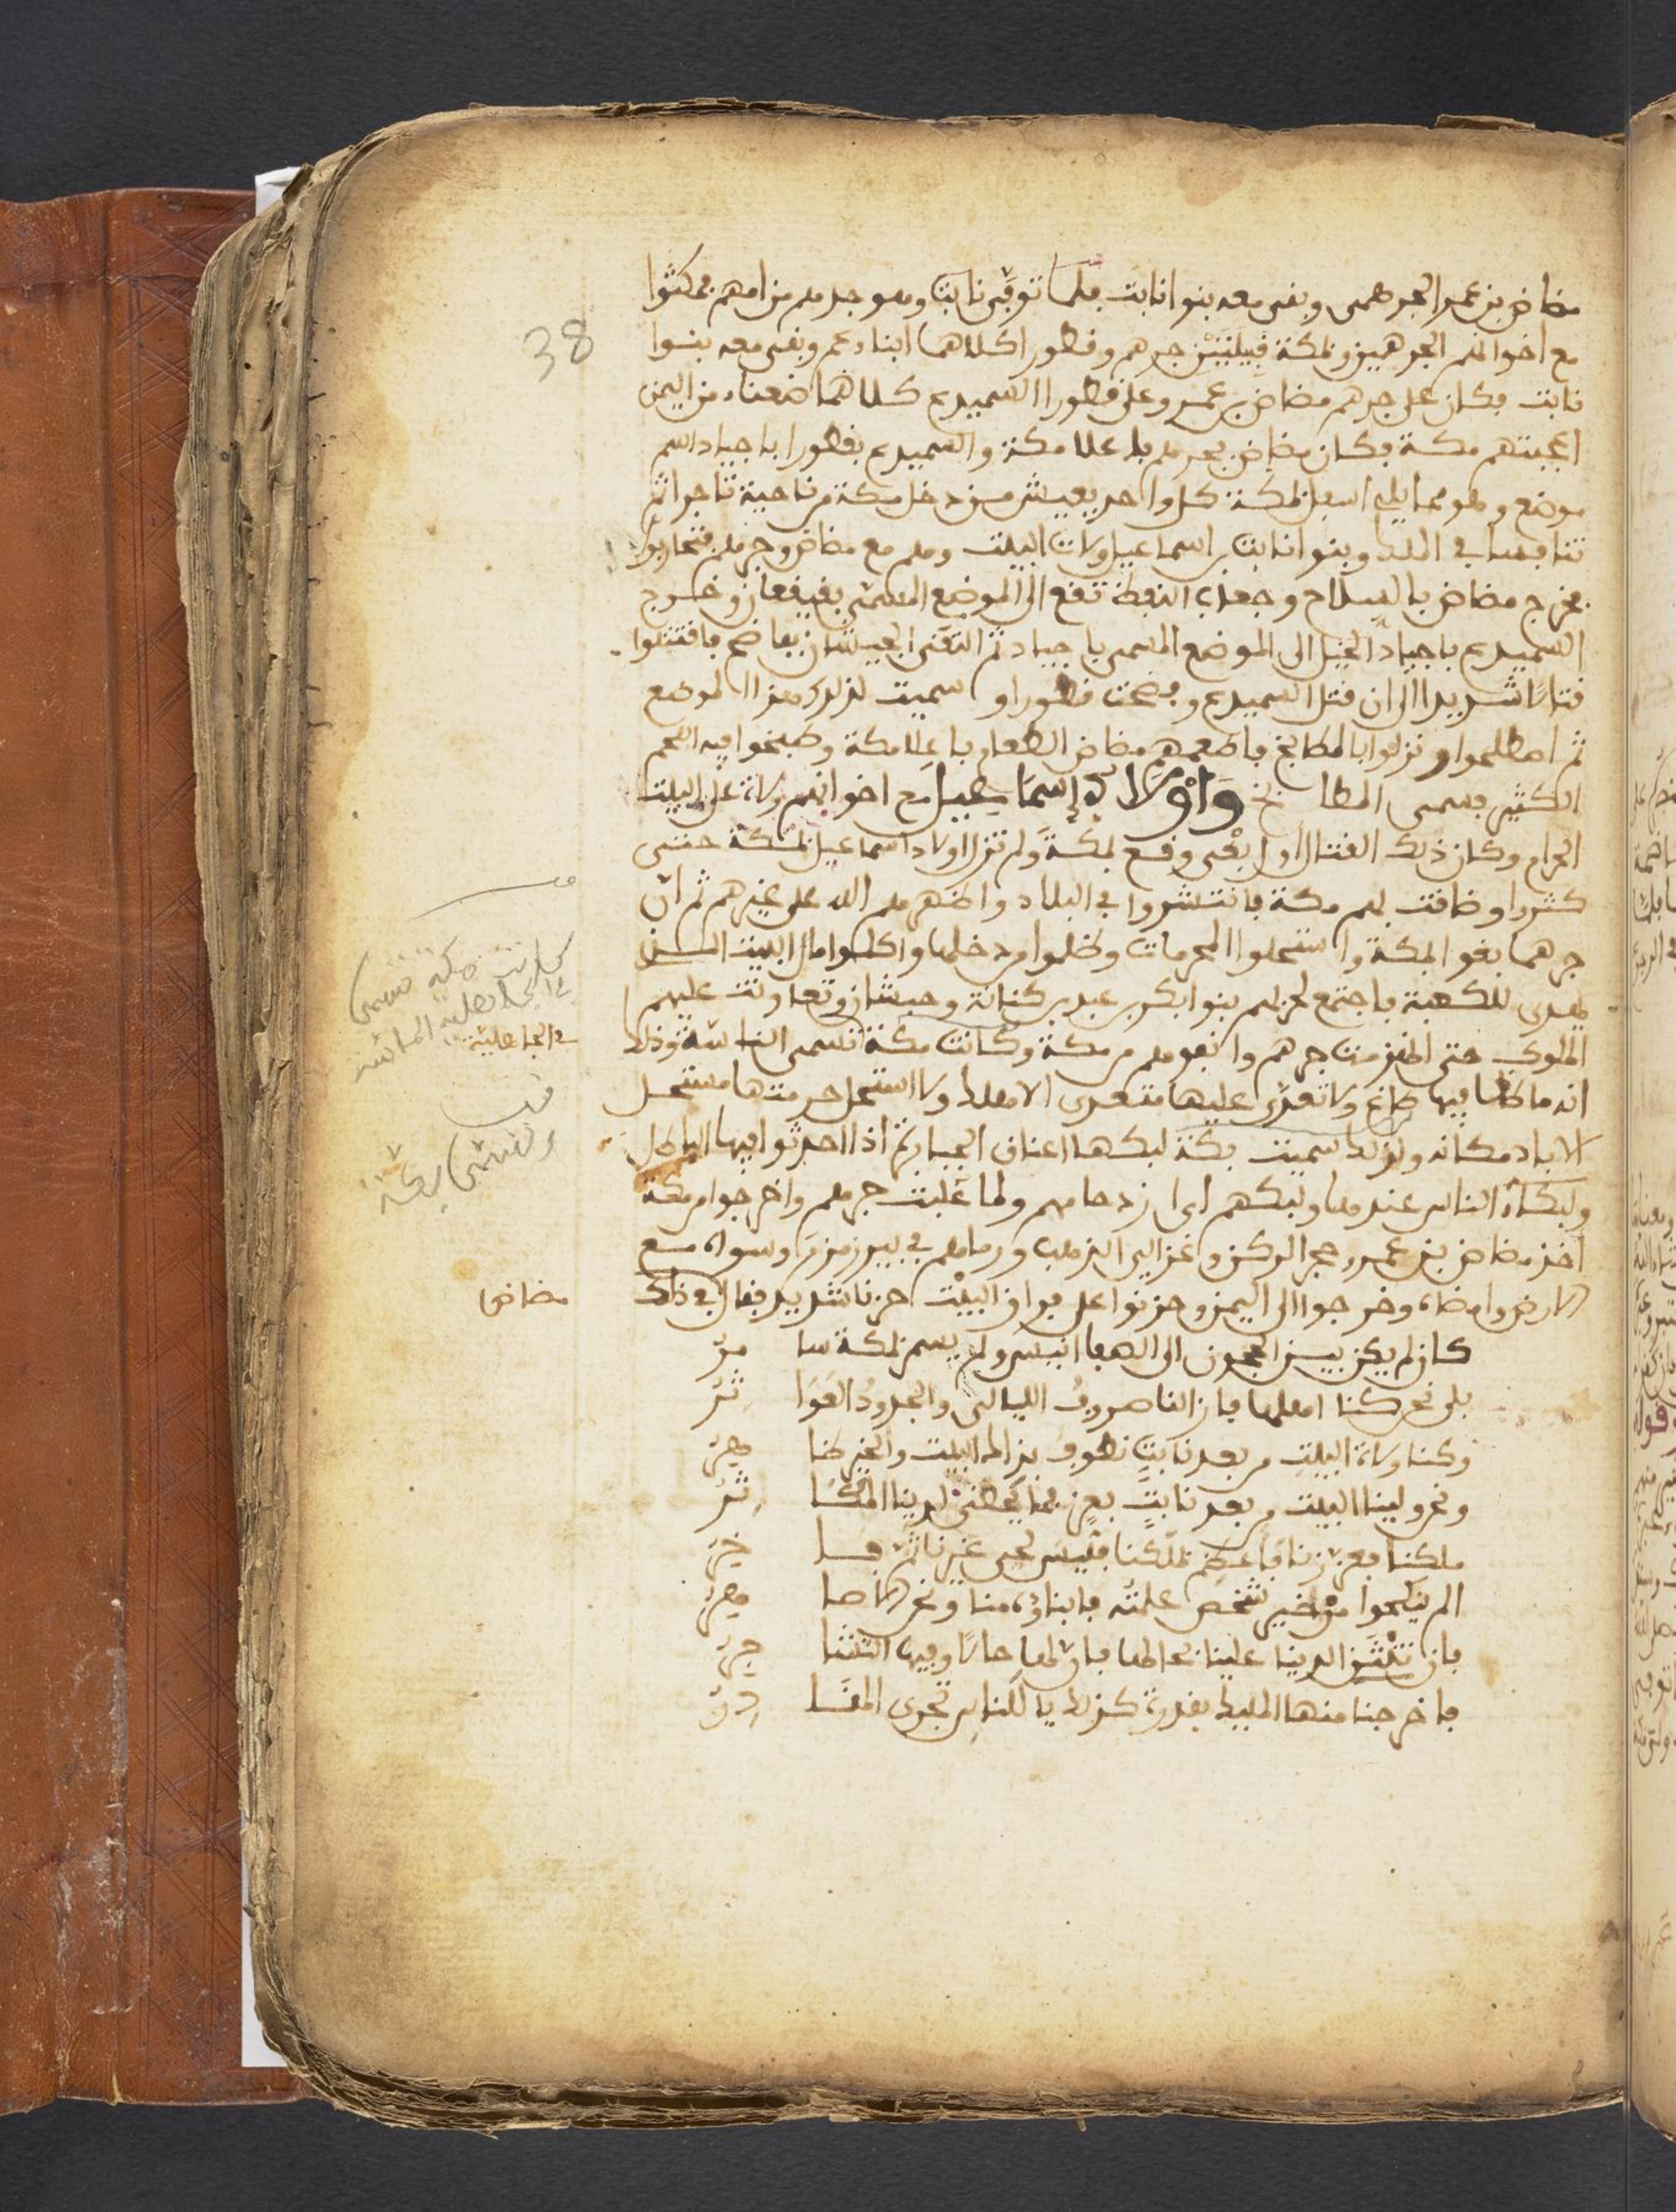 مضاض بن عمر الجرهمى وبقى معه بنوا نابت فلما توفى نابت وهو جدهم من امهم فمكثوا
مع اخوالهم الجرهميين وبمكة قبيلتين جرهم وقطورا كلاهما ابناء عم وبقى معه بنوا
38
نابت فكان على جرهم مضاض بن عمر وعلى قطورا السميدع كلاهما ضعناء من اليمن
اعجبتهم مكة فكان مضاض بجرهم باعلا مكة والسميدع بقطورا باجياد اسم
موضع وهو مما يلى اسفل مكة كل واحد يعيش من دخل مكة من ناحية ثم
تنافسا في الملك وبنوا نابت بن اسماعيل ولات البيت وهم مع مضاض وجرهم فتحاربوا
فخرج مضاض بالسلاح وجعلت تقع الى الموضع المسمى بقيقعان وخرج
السميدع باجياد الخيل الى الموضع المسمى باجياد ثم التقى الجيشان بفاضح فاقتتلوا
قتالا شديدا الى ان قتل السميدع وفضحت قطورا وسميت لذلك هذا الموضع
ثم اصطلحوا ونزلوا بالمطابخ فاطعمهم مضاض الطعام باعلا مكة وطبخوا فيه اللحم
الكثير فسمى المطابخ واولاد إسماعيل مع اخوانهم ولاة على البيت
الحرام وكان ذلك القتال اول بغى وقع بمكة ولم تزل اولاد اسماعيل بمكة حتى
كثروا وضاقت بهم مكة فانتشروا في البلاد واظهرهم الله على غيرهم ثم ان
جرهما بغوا بمكة واستحلوا المحرمات وظلموا من دخلها واكلوا مال البيت الذى
يهدى للكعبة فاجتمع لحربهم بنوا بكر بن عبد بن كنانة وحبشان وتعاونت عليهم
الملوك حتى انهزمت جرهم وانفوهم من مكة وكانت مكة تسمى الناسة وذلك
كانت مكة تسمى
في الجاهلية الناسة
في الجاهلية
انه ما ظلم فيها ظالم ولا تعدى عليها متعدى الا هلك ولا استحل حرمتها مستحل
الا باد مكانه ولذلك سميت بكة لبكها اعناق الجبابرة اذا احدثوا فيها الباطل
وتسمى بكة
ولبكاء الناس عندها ولبكهم اى ازدحامهم ولما غلبت جرهم واخرجوا من مكة
اخذ مضاض بن عمر حجر الركن وغزالى الذهب ورماهم في بير زمزم وسواه مع
الارض وامضاه وخرجوا الى اليمن وحزنوا على فراق البيت حزنا شديد فقال في ذلك
مضاض
كان لم يكن بين الحجون الى الصفا انيس ولم يسمر بمكة سا مر
بلى نحن كنا اهلها فازالنا صروف الليالى والجدود العوا ثر
وكنا ولاة البيت من بعد نابت نطوف بذاك البيت والخير ظا هر
ونحن ولينا البيت من بعد نابت بعز فما يحظى لدينا المكا ثر
ملكنا فعززنا فاعظم بملكنا فليس لحى غيرنا ثم فا خر
الم ينكحوا من خير شخص علمته فابناؤه منا ونحن الاصا هر
فان تنثن الدنيا علينا بحالها فان لها حالا وفيها التشا جر
فاخرجنا منها المليك بقدرة كذلك يا للناس تجرى المقا در